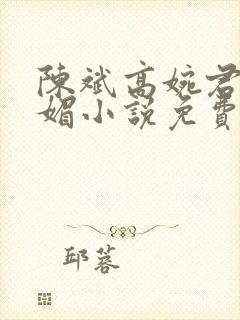 陳斌高婉君
媚小說免費
邱蓉